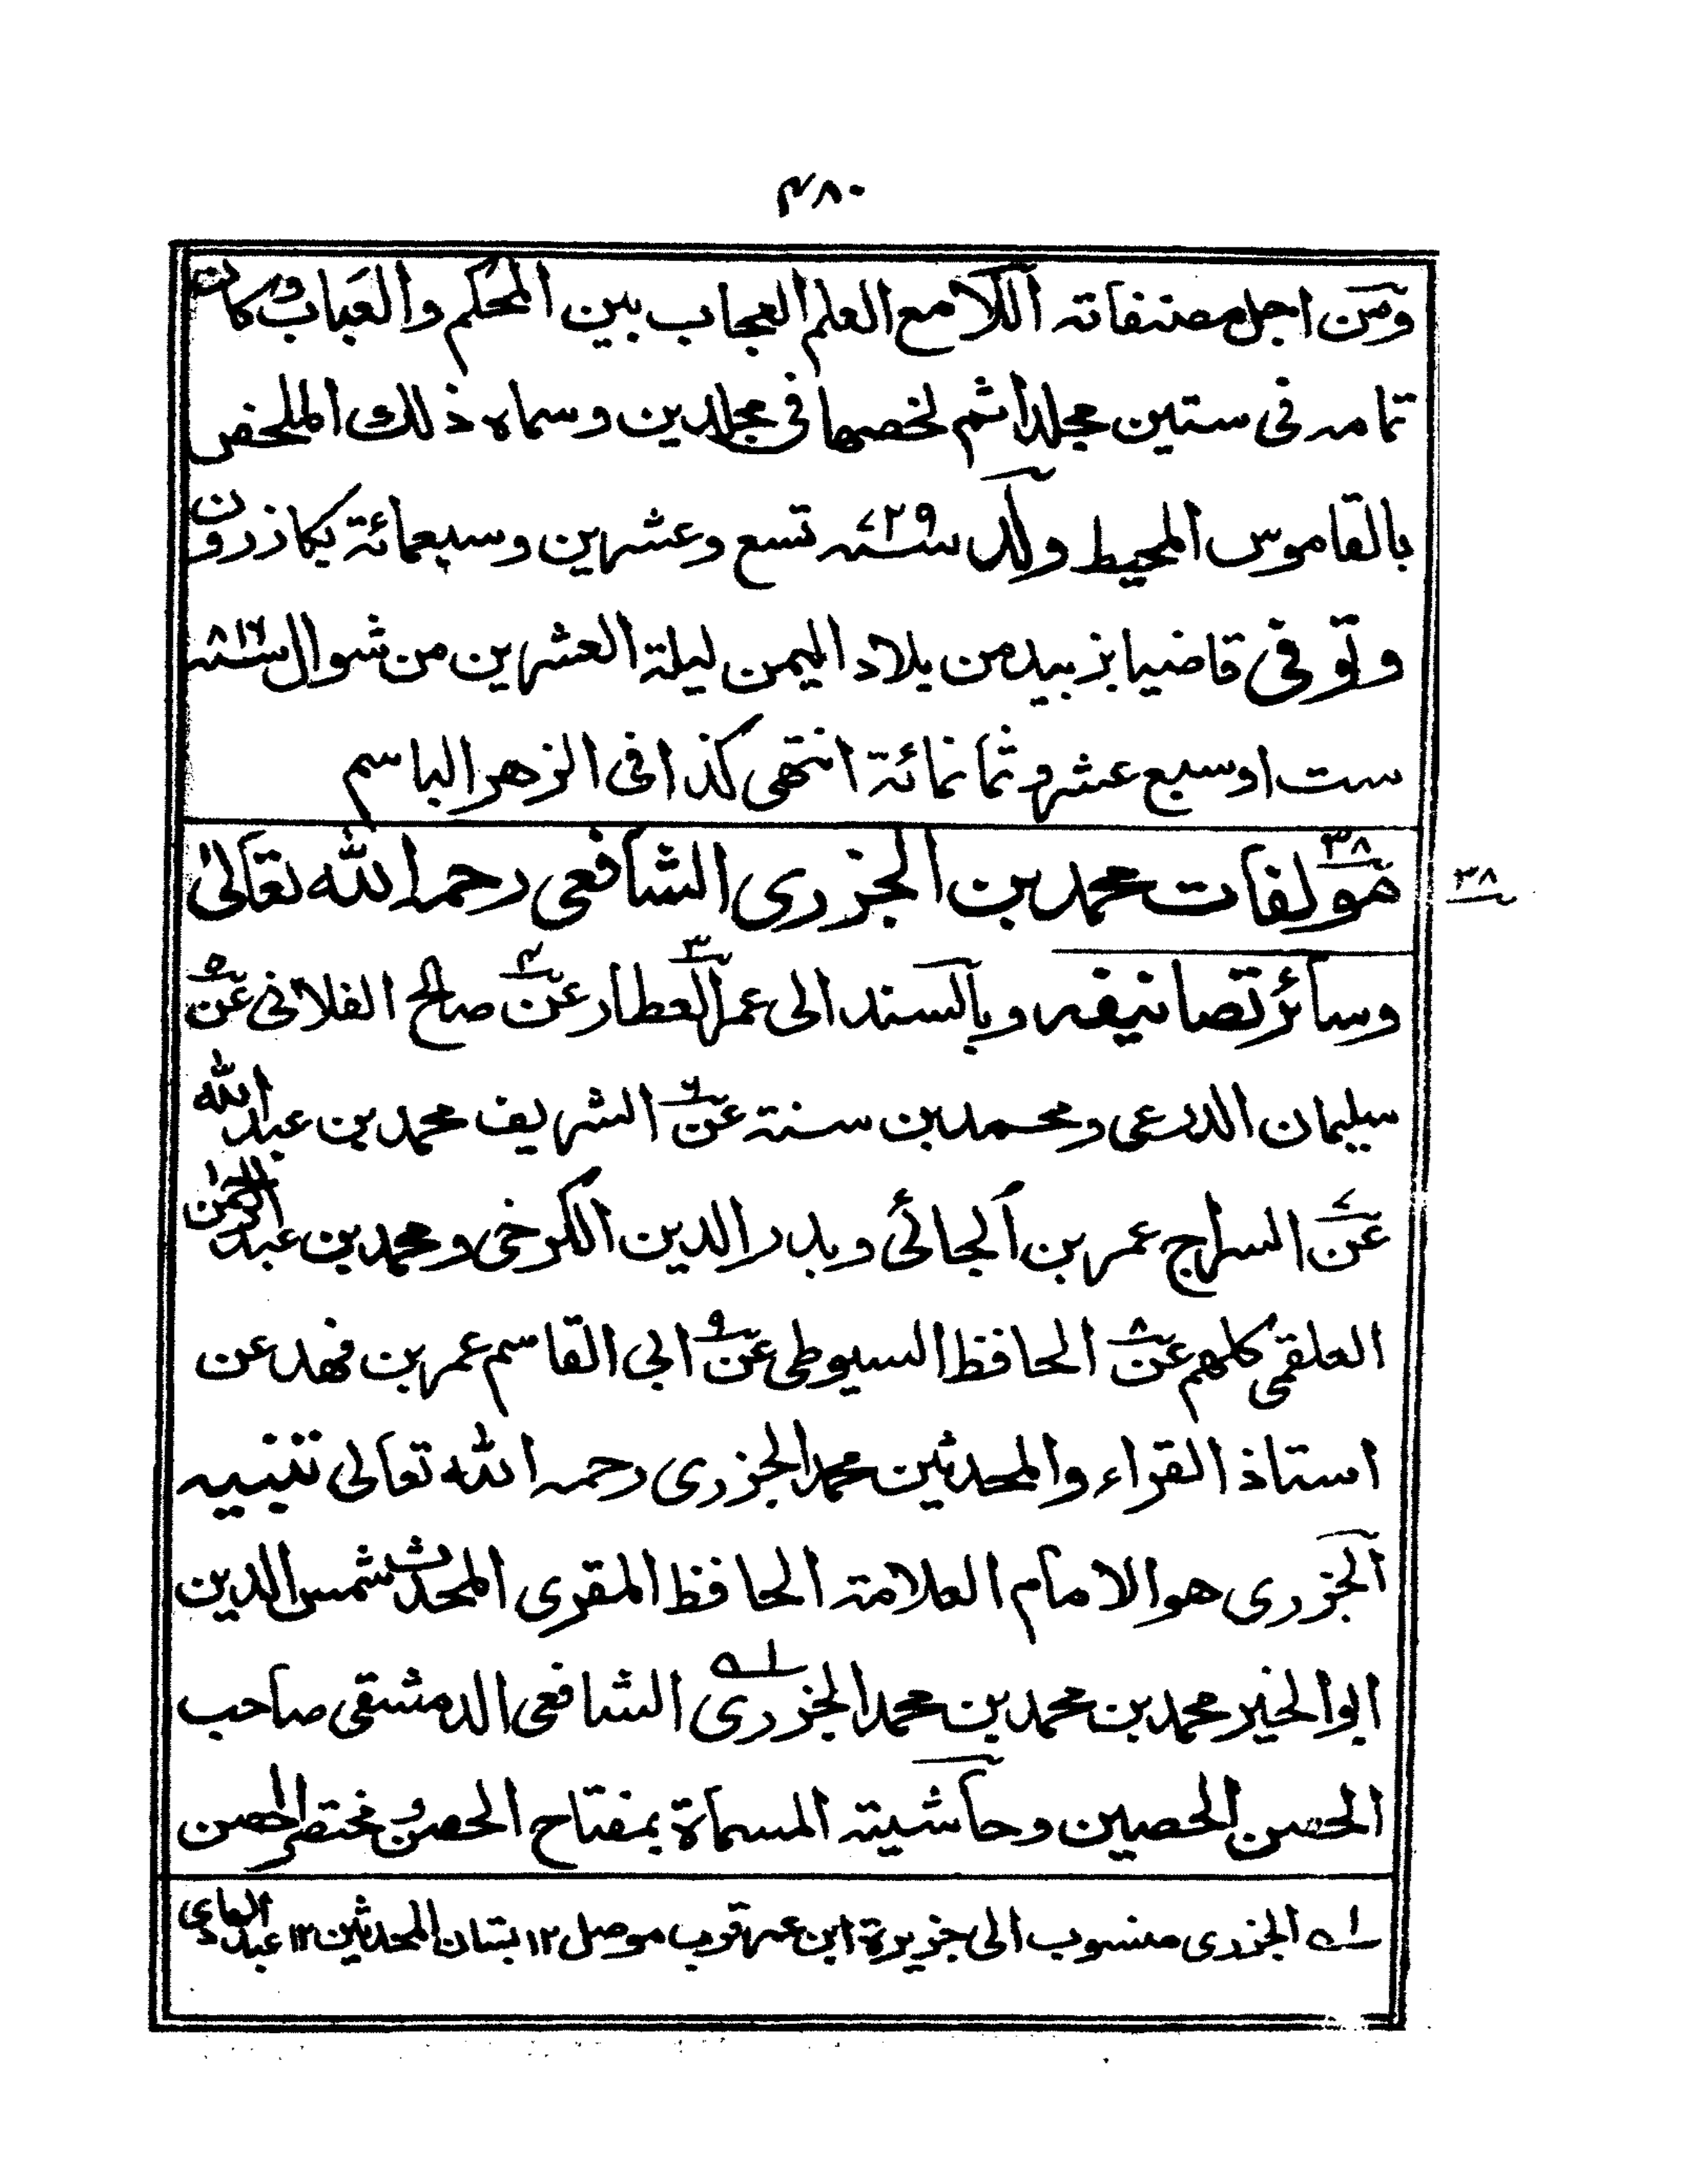 ۴۸۰
ومن اجل مصنفاته اللامع العلم العجاب بين المحكم والعباب وكان
تمامه فى ستين مجلدا ثم لخصها فى مجلدين وسماه ذلك الملخص
بالقاموس المحيط ولد سنة ۷۲۹ تسع وعشرين وسبعمائة بكازرون
وتوفى قاضيا بزبيد من بلاد اليمن ليلة العشرين من شوال سنة ۸۱۶
ست او سبع عشر وثمانمائة انتهى كذا فى الزهر الباسم
۳۸ مؤلفات محمد بن الجزرى الشافعى رحمه الله تعالىٰ
۳۸
وسائر تصانيفه وبالسند الى عمر العطار ۳ عن ۴ صالح الفلانى عن ۵
سليمان الدرعى ومحمد بن سنة عن ۶ الشريف محمد بن عبد الله
عن ۷ السراج عمر بن الجائى وبدر الدين الكرخى ومحمد بن عبد الرحمن
العلقمى كلهم عن ۸ الحافظ السيوطى عن ۹ ابى القاسم عمر بن فهد عن
استاذ القراء والمحدثين محمد الجزرى رحمه الله تعالى تنبيه
الجزرى هو الامام العلامة الحافظ المقرى المحدث شمس الدين
ابو الخير محمد بن محمد بن محمد الجزرى ۱ه الشافعى الدمشقى صاحب
الحصن الحصين وحاشيته المسماة بمفتاح الحصن ومختصر الحصن
۱ه الجزرى منسوب الى جزيرة ابن عمر قرب موصل ۱۲ بستان المحدثين ۱۲ عبد الهادى